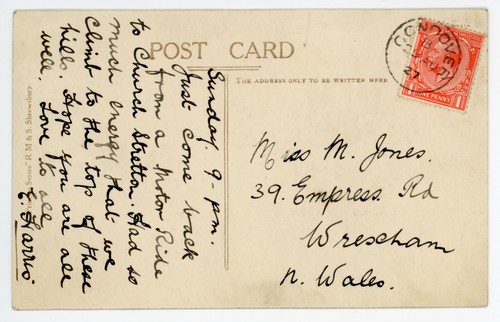 POST CARD
THE ADDRESS ONLY TO BE WRITTEN HERE
Sunday. 9-pm.
Just come back
from a Motor Ride
to Church Stretton. Had so
much energy that we
climb to the top of these
hills. Hope you are all
well. Love to all
E. Harris
Miss M. Jones.
39. Empress Rd
Wrexham
N. Wales.
CONDOVER
27
ONE PENNY
1
Series" R.M & S. Shrewsbury